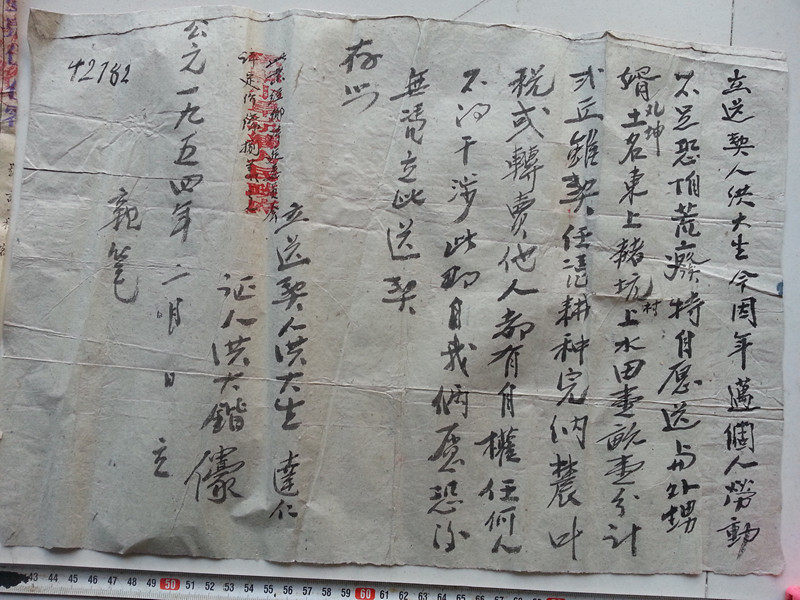 立送契人洪大生今因年邁個人勞動
不足恐怕荒癈特自愿送与外甥
婿礼坤土名東上豬坑村上水田壹畝壹分計
弍丘雖契任憑耕种完納農叶
税或轉賣他人都有自權任何人
不得干涉此助自我倆愿恐後
無凴立此送契
存照
立送契人洪大生 達仁
证人洪大鍇 儫
評定价
公元一九五四年二月 日 立
親筆
42782
50
60